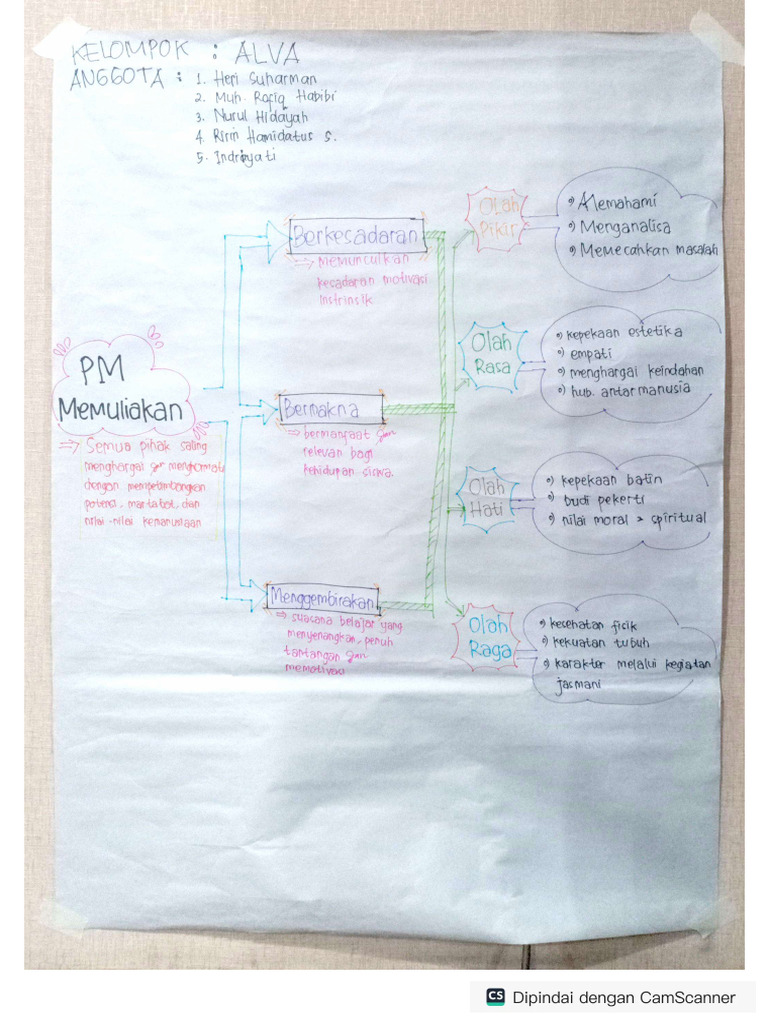 KELOMPOK : ALVA
ANGGOTA : 1. Heri Suharman
2. Muh. Rofiq Habibi
3. Nurul Hidayah
4. Ririn Hamidatus S.
5. Indriyati
PM
Memuliakan
⇒ Semua pihak saling
menghargai dan menghormati
dengan mempertimbangkan
potensi, martabat, dan
nilai-nilai kemanusiaan
Berkesadaran
⇒ Memunculkan
kesadaran motivasi
instrinsik
Bermakna
⇒ bermanfaat dan
relevan bagi
kehidupan siswa.
Menggembirakan
⇒ suasana belajar yang
menyenangkan, penuh
tantangan dan
memotivasi
Olah
Pikir
Memahami
Menganalisa
Memecahkan masalah
Olah
Rasa
kepekaan estetika
empati
menghargai keindahan
hub. antarmanusia
Olah
Hati
kepekaan batin
budi pekerti
nilai moral > spiritual
Olah
Raga
kesehatan fisik
kekuatan tubuh
karakter melalui kegiatan
jasmani
CS Dipindai dengan CamScanner